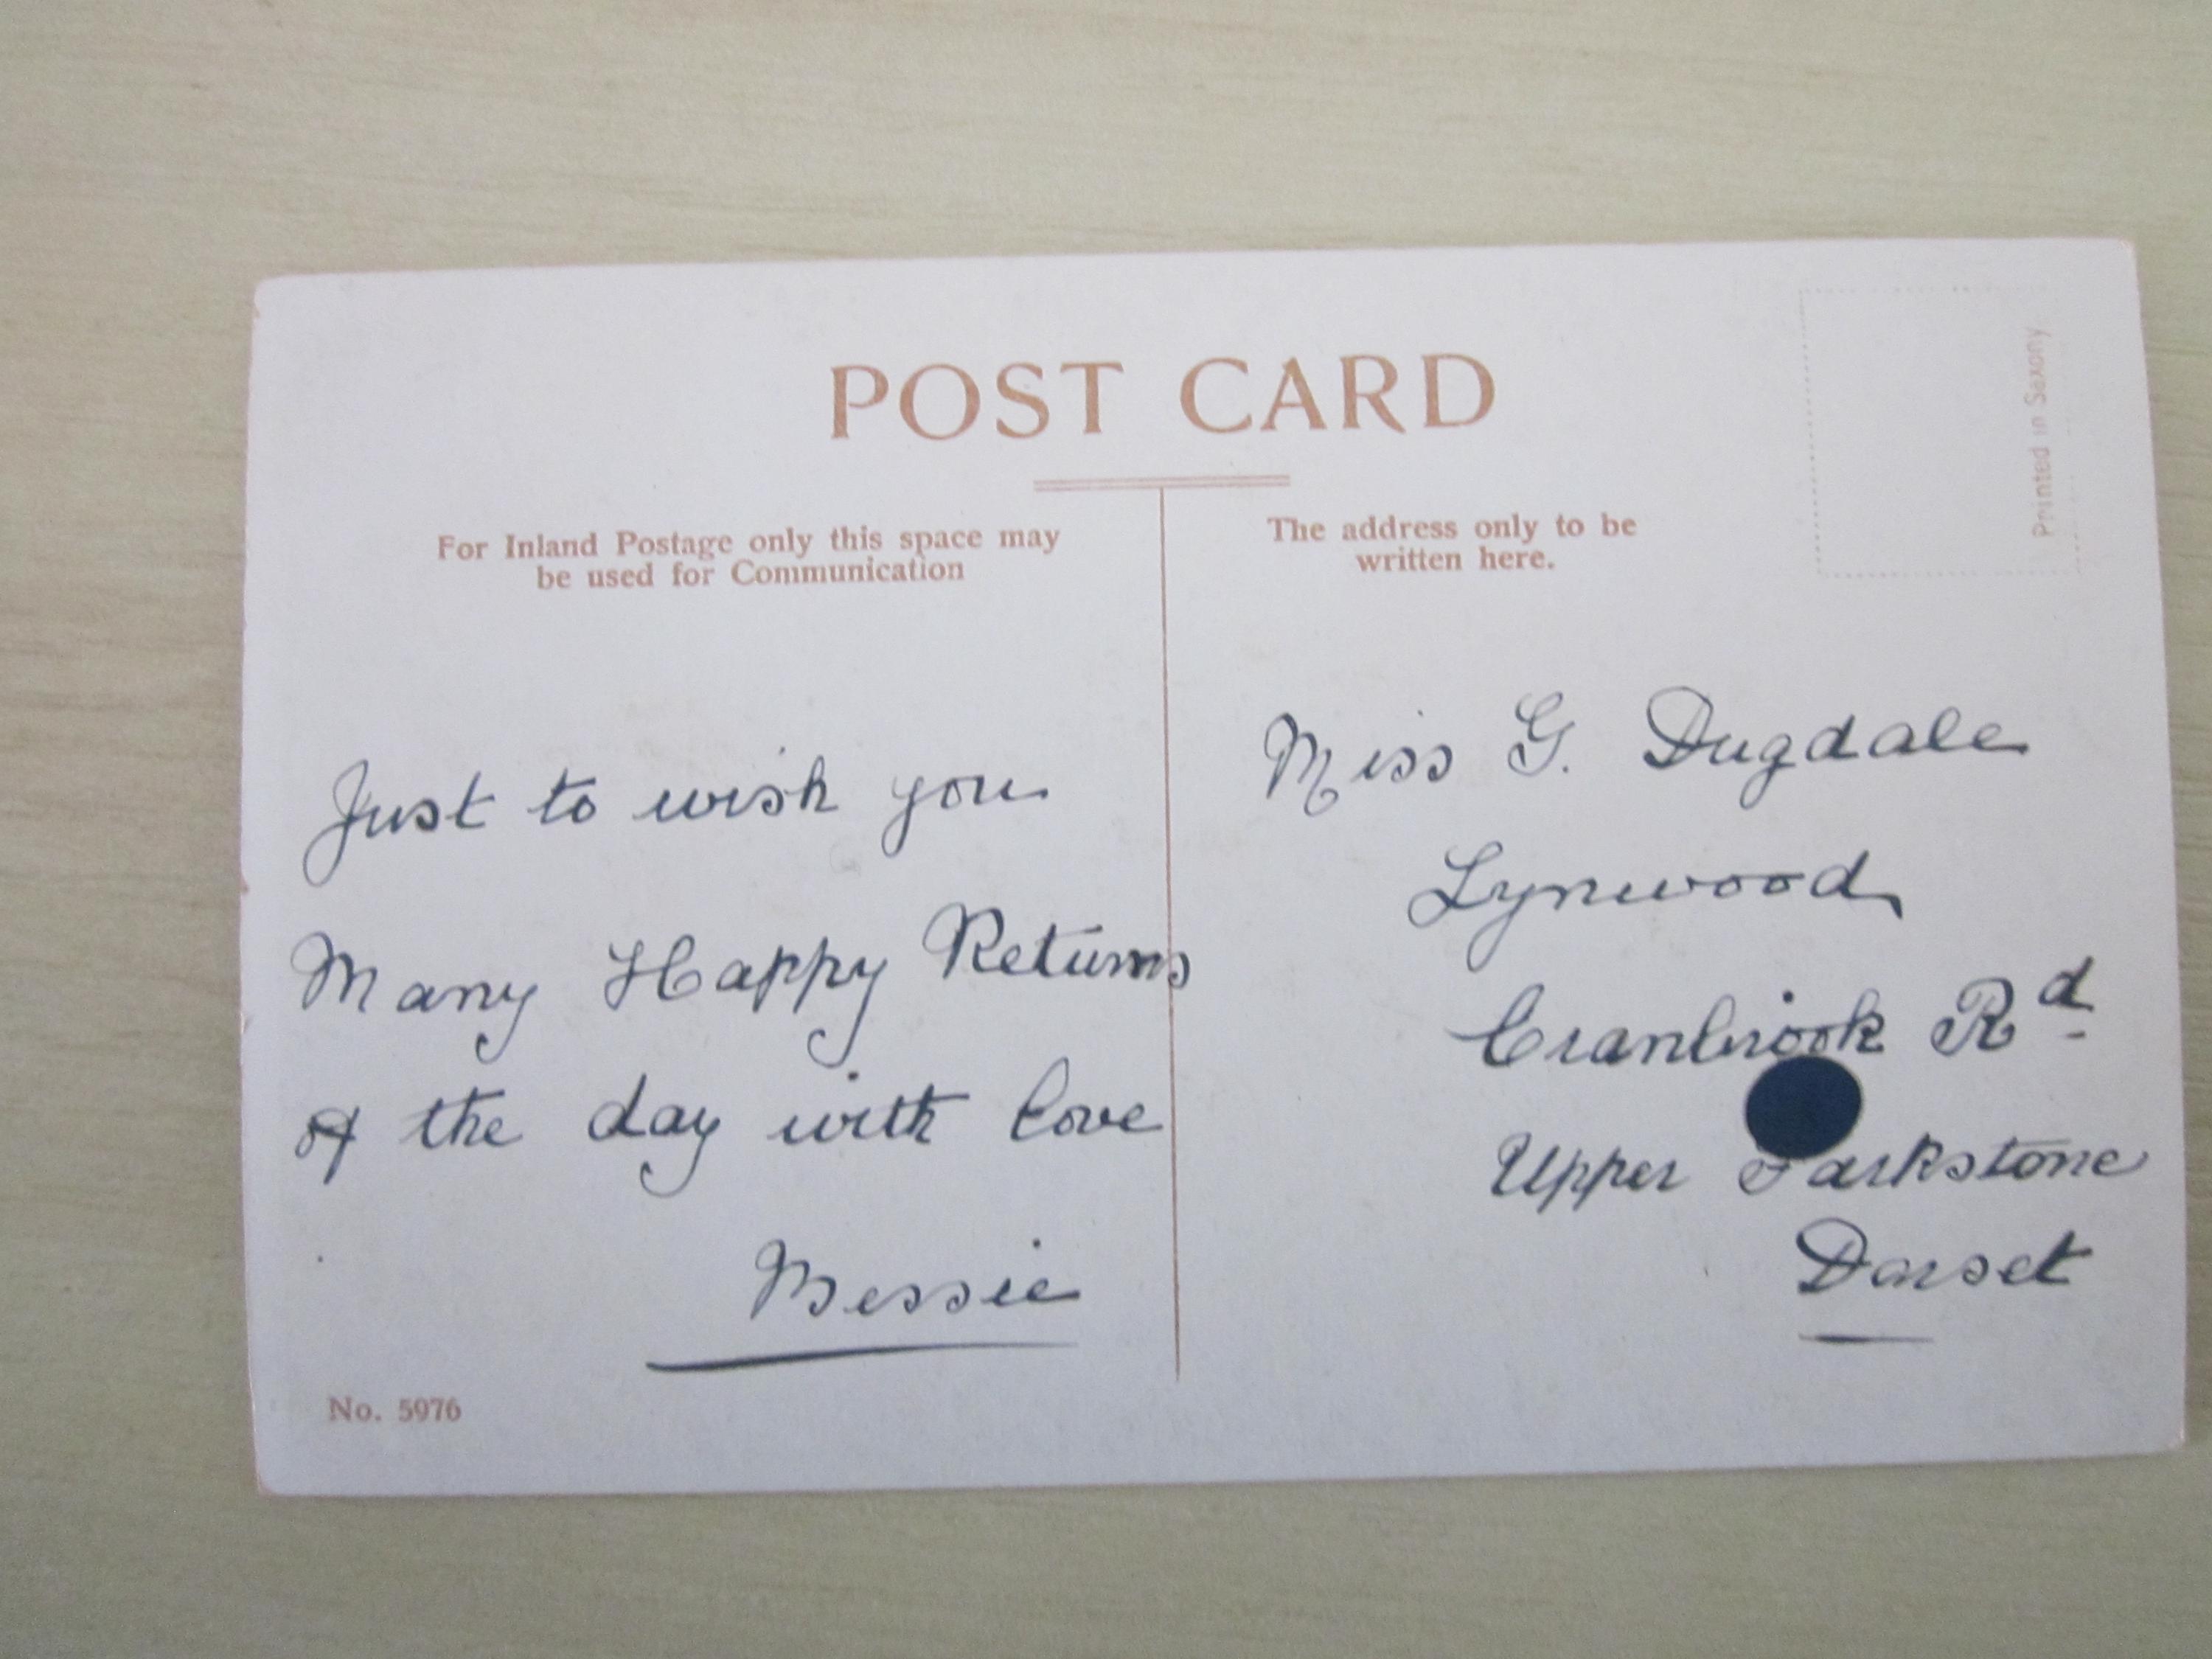 POST CARD
For Inland Postage only this space may
be used for Communication
The address only to be
written here.
Printed in Saxony
Just to wish you
Many Happy Returns
of the day with love
Bessie
No. 5976
Miss G. Dugdale
Lynwood
Cranbrook Rd
Upper Parkstone
Dorset